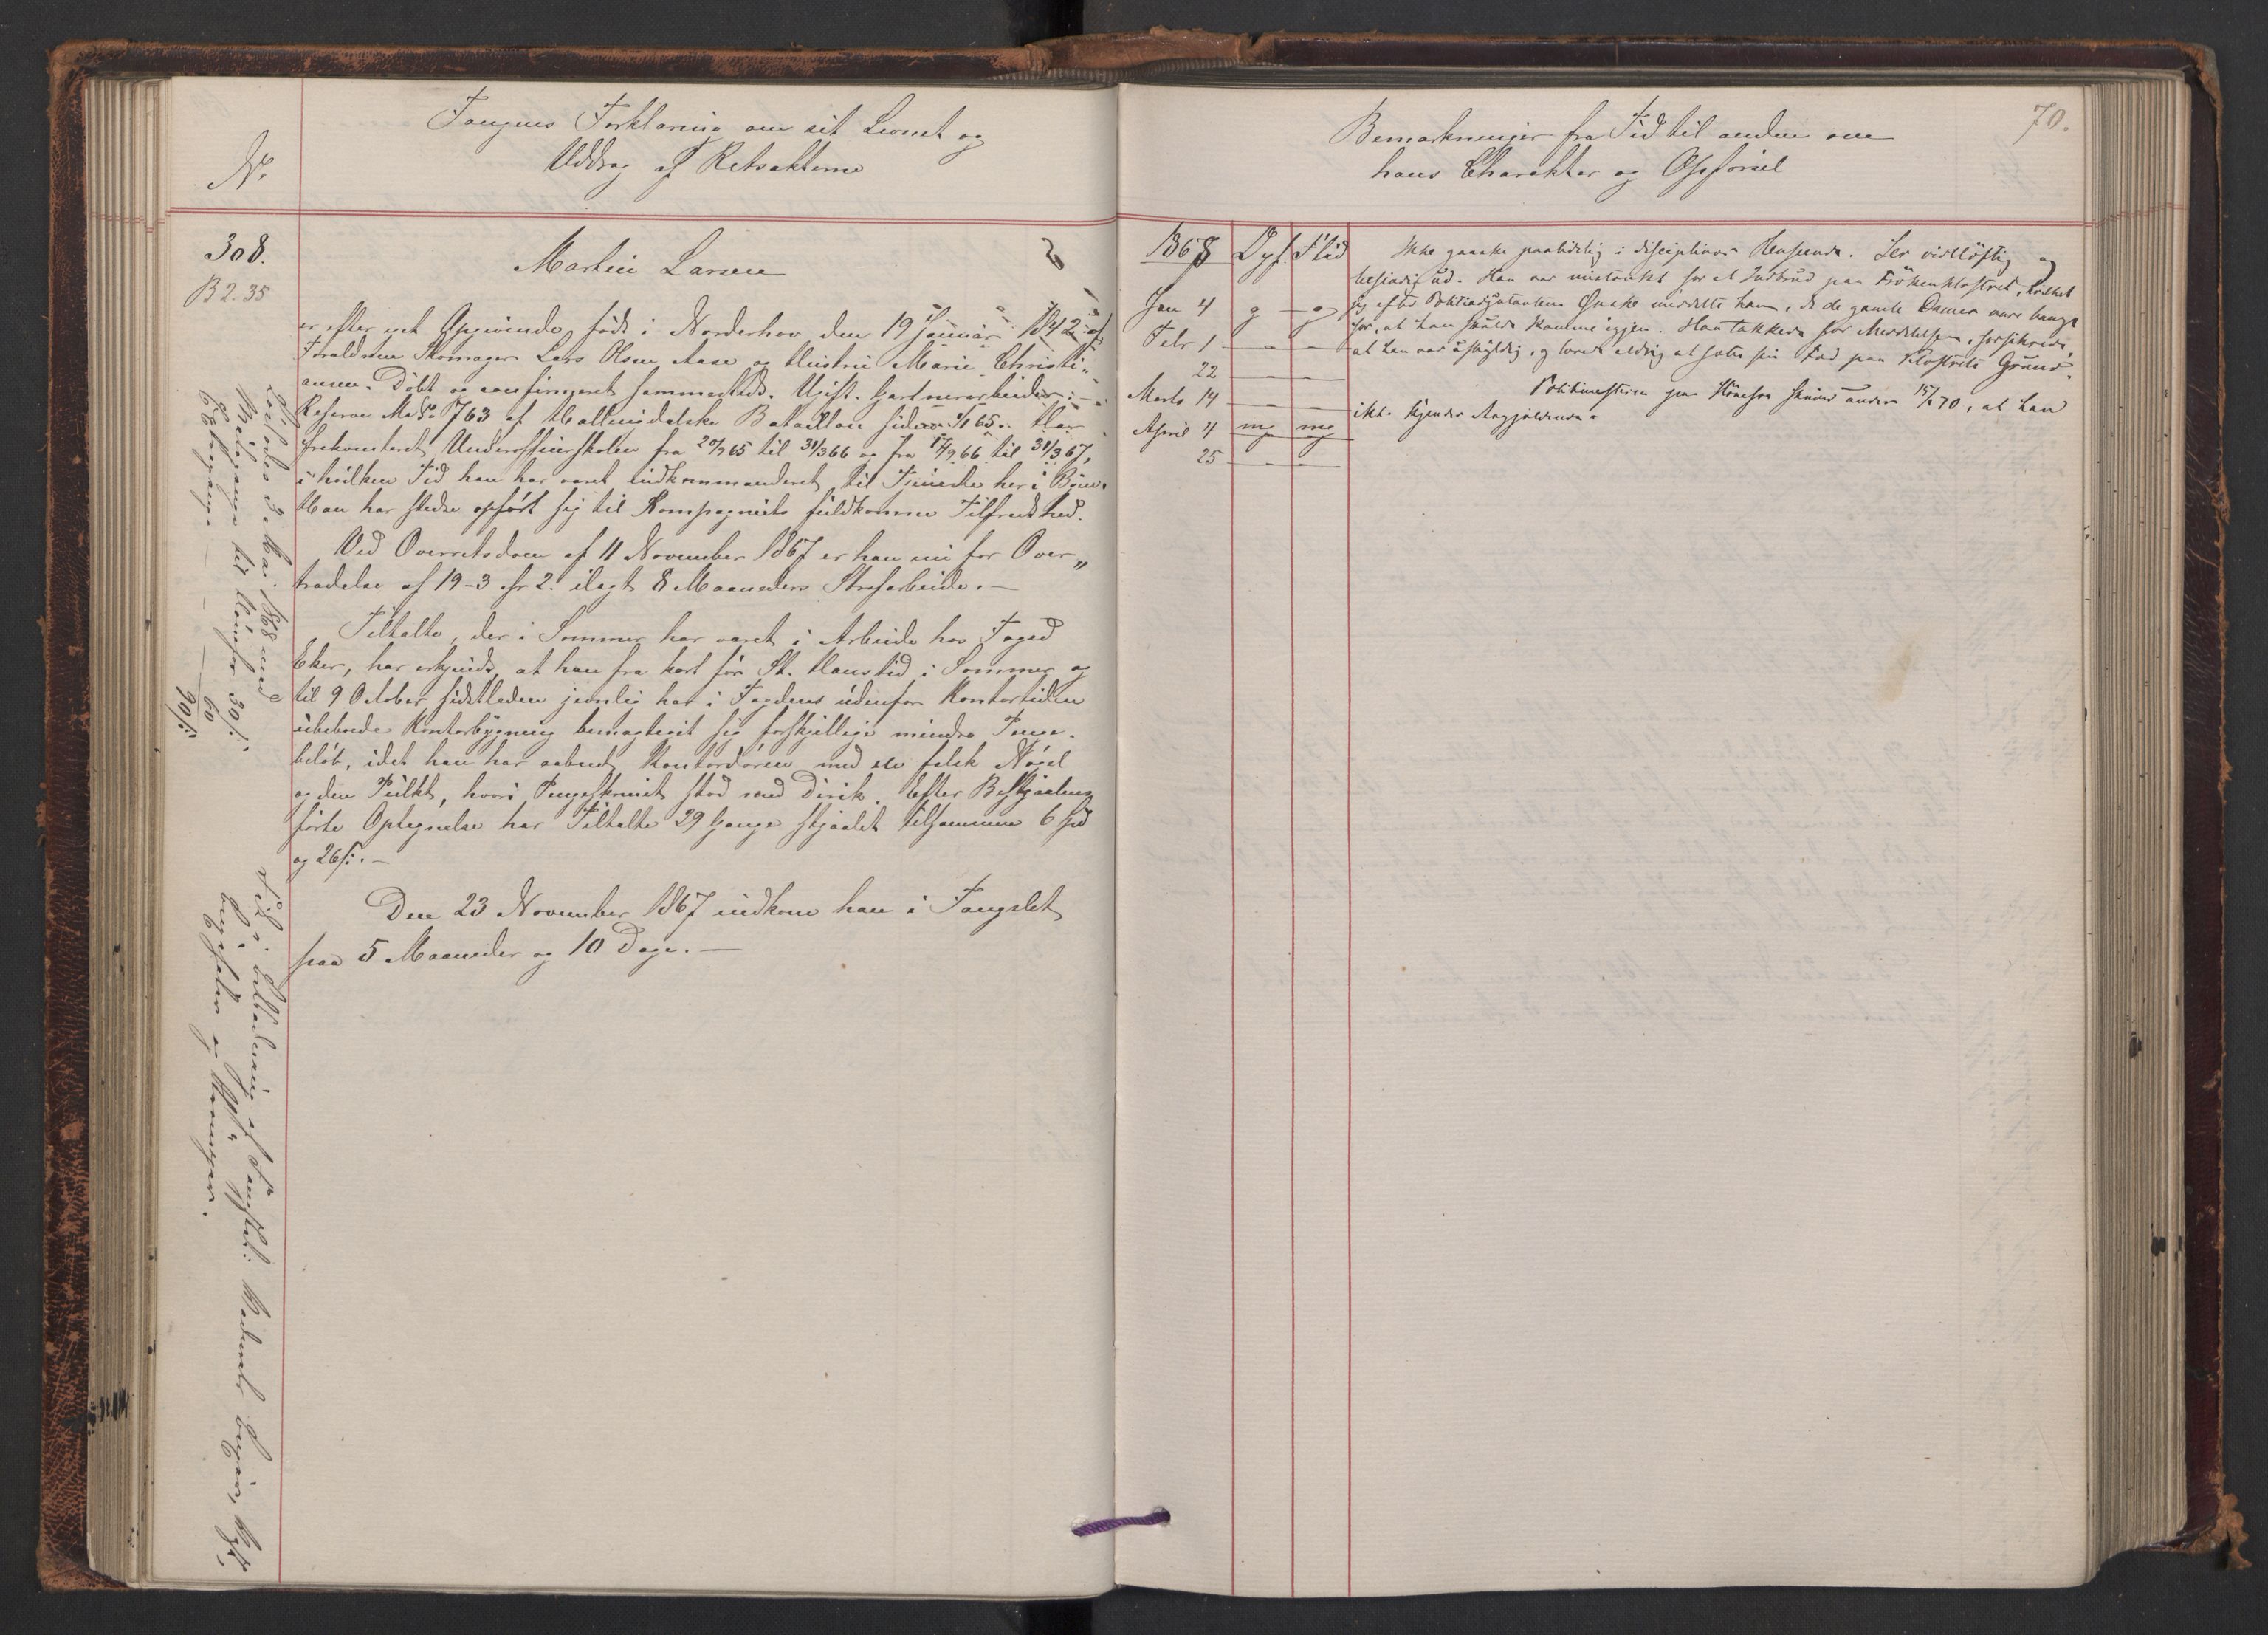 Fangens Forklaring om sit Levnet og
Uddrag af Retsakterne
No
308.
B 2. 35
Martin Larsen
er efter eget Opgivende født i Norderhov den 19 Januar 1842 af
Forældrene Skomager Lars Olsen Aase og Hustru Marie Christi„
ansen. Döbt og confirmeret sammesteds. Ugift. Gartnerarbeider.
Reserve Md No 763 af Hallingdalske Batallion siden 1/1 65. Har
frekventeret Underofficierskolen fra 20/9 65 til 31/3 66 og fra 17/9 66 til 31/3 67,
i hvilken Tid han har været indkommanderet til Tjeneste her i Byen.
Han har stedse opført sig til Kompagniets fuldkomne Tilfredshed.
Ved Overretsdom af 11 November 1867 er han nu for Over„
trædelse af 19-3 cfr 2. ilagt 8 Maaneders Strafarbeide.—
Tiltalte, der i Sommer har været i Arbeide hos Foged
Eker, har erkjendt, at han fra kort för St. Hanstid i Sommer og
til 9 October sidstleden jevnlig har i Fogdens udenfor Kontortiden
ubeboede Kontorbygning bemægtiget sig forskjellige mindre Penge-
beløb, idet han har aabnet Kontordören med en falsk Nögel
og den Pulkt, hvori Pengeskrinet stod med Dirik. Efter Bestjaalnes
førte Optegnelse har Tiltalte 29 Gange stjaalet tilsammen 6 Spd
og 26 s.—
Den 23 November 1867 indkom han i Fængslet
paa 5 Maaneder og 10 Dage.—
Löslodes 3 Mai 1868 med
Reisepenge til Hönefos 30 s
Extrapenge — — 60
90 s
Fik i Vederlag af Fængslet: Vadmels Buxer,
Buxeseler og Kommager.
70.
Bemærkninger fra Tid til anden om
hans Charakter og Opførsel
1868 Opf. Flid
Jan 4 g — g
Febr 1 — —
22 — —
Marts 14 — —
April 4 mg mg
25 — —
Ikke ganske paalidelig i disciplinær Henseende. Ser vidtlöftig og
besindig ud. Han var mistænkt for et Indbrud paa Frökenklostret, hvilket
jeg efter Politiadjutantens Önske meddelte ham, da de gamle Damer vare bange
for, at han skulde komme igjen. Han takkede for Meddelelsen, forsikrede,
at han var uskyldig, og lovede aldrig at sætte sin Fod paa Klostrets Grund.
Politimesteren paa Hönefos skriver under 15/2 70, at han
ikke kjender Angjældende.